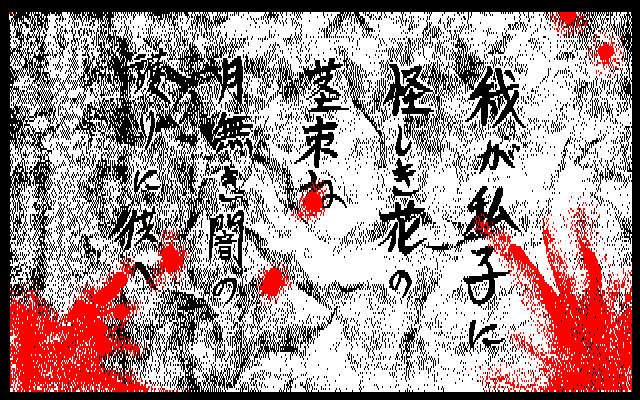 我が私子に
怪しき花の
茎束ね
月無き闇の
誘りに候へ